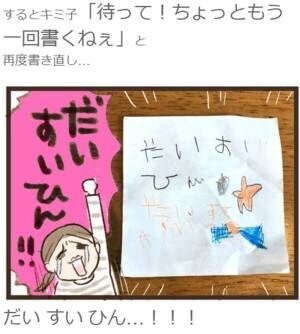 するとキミ子「待って！ちょっともう
一回書くねぇ」と
再度書き直し...
だい
すいひん!!
だいすい
ひん
だいす
だい すい ひん...！！！